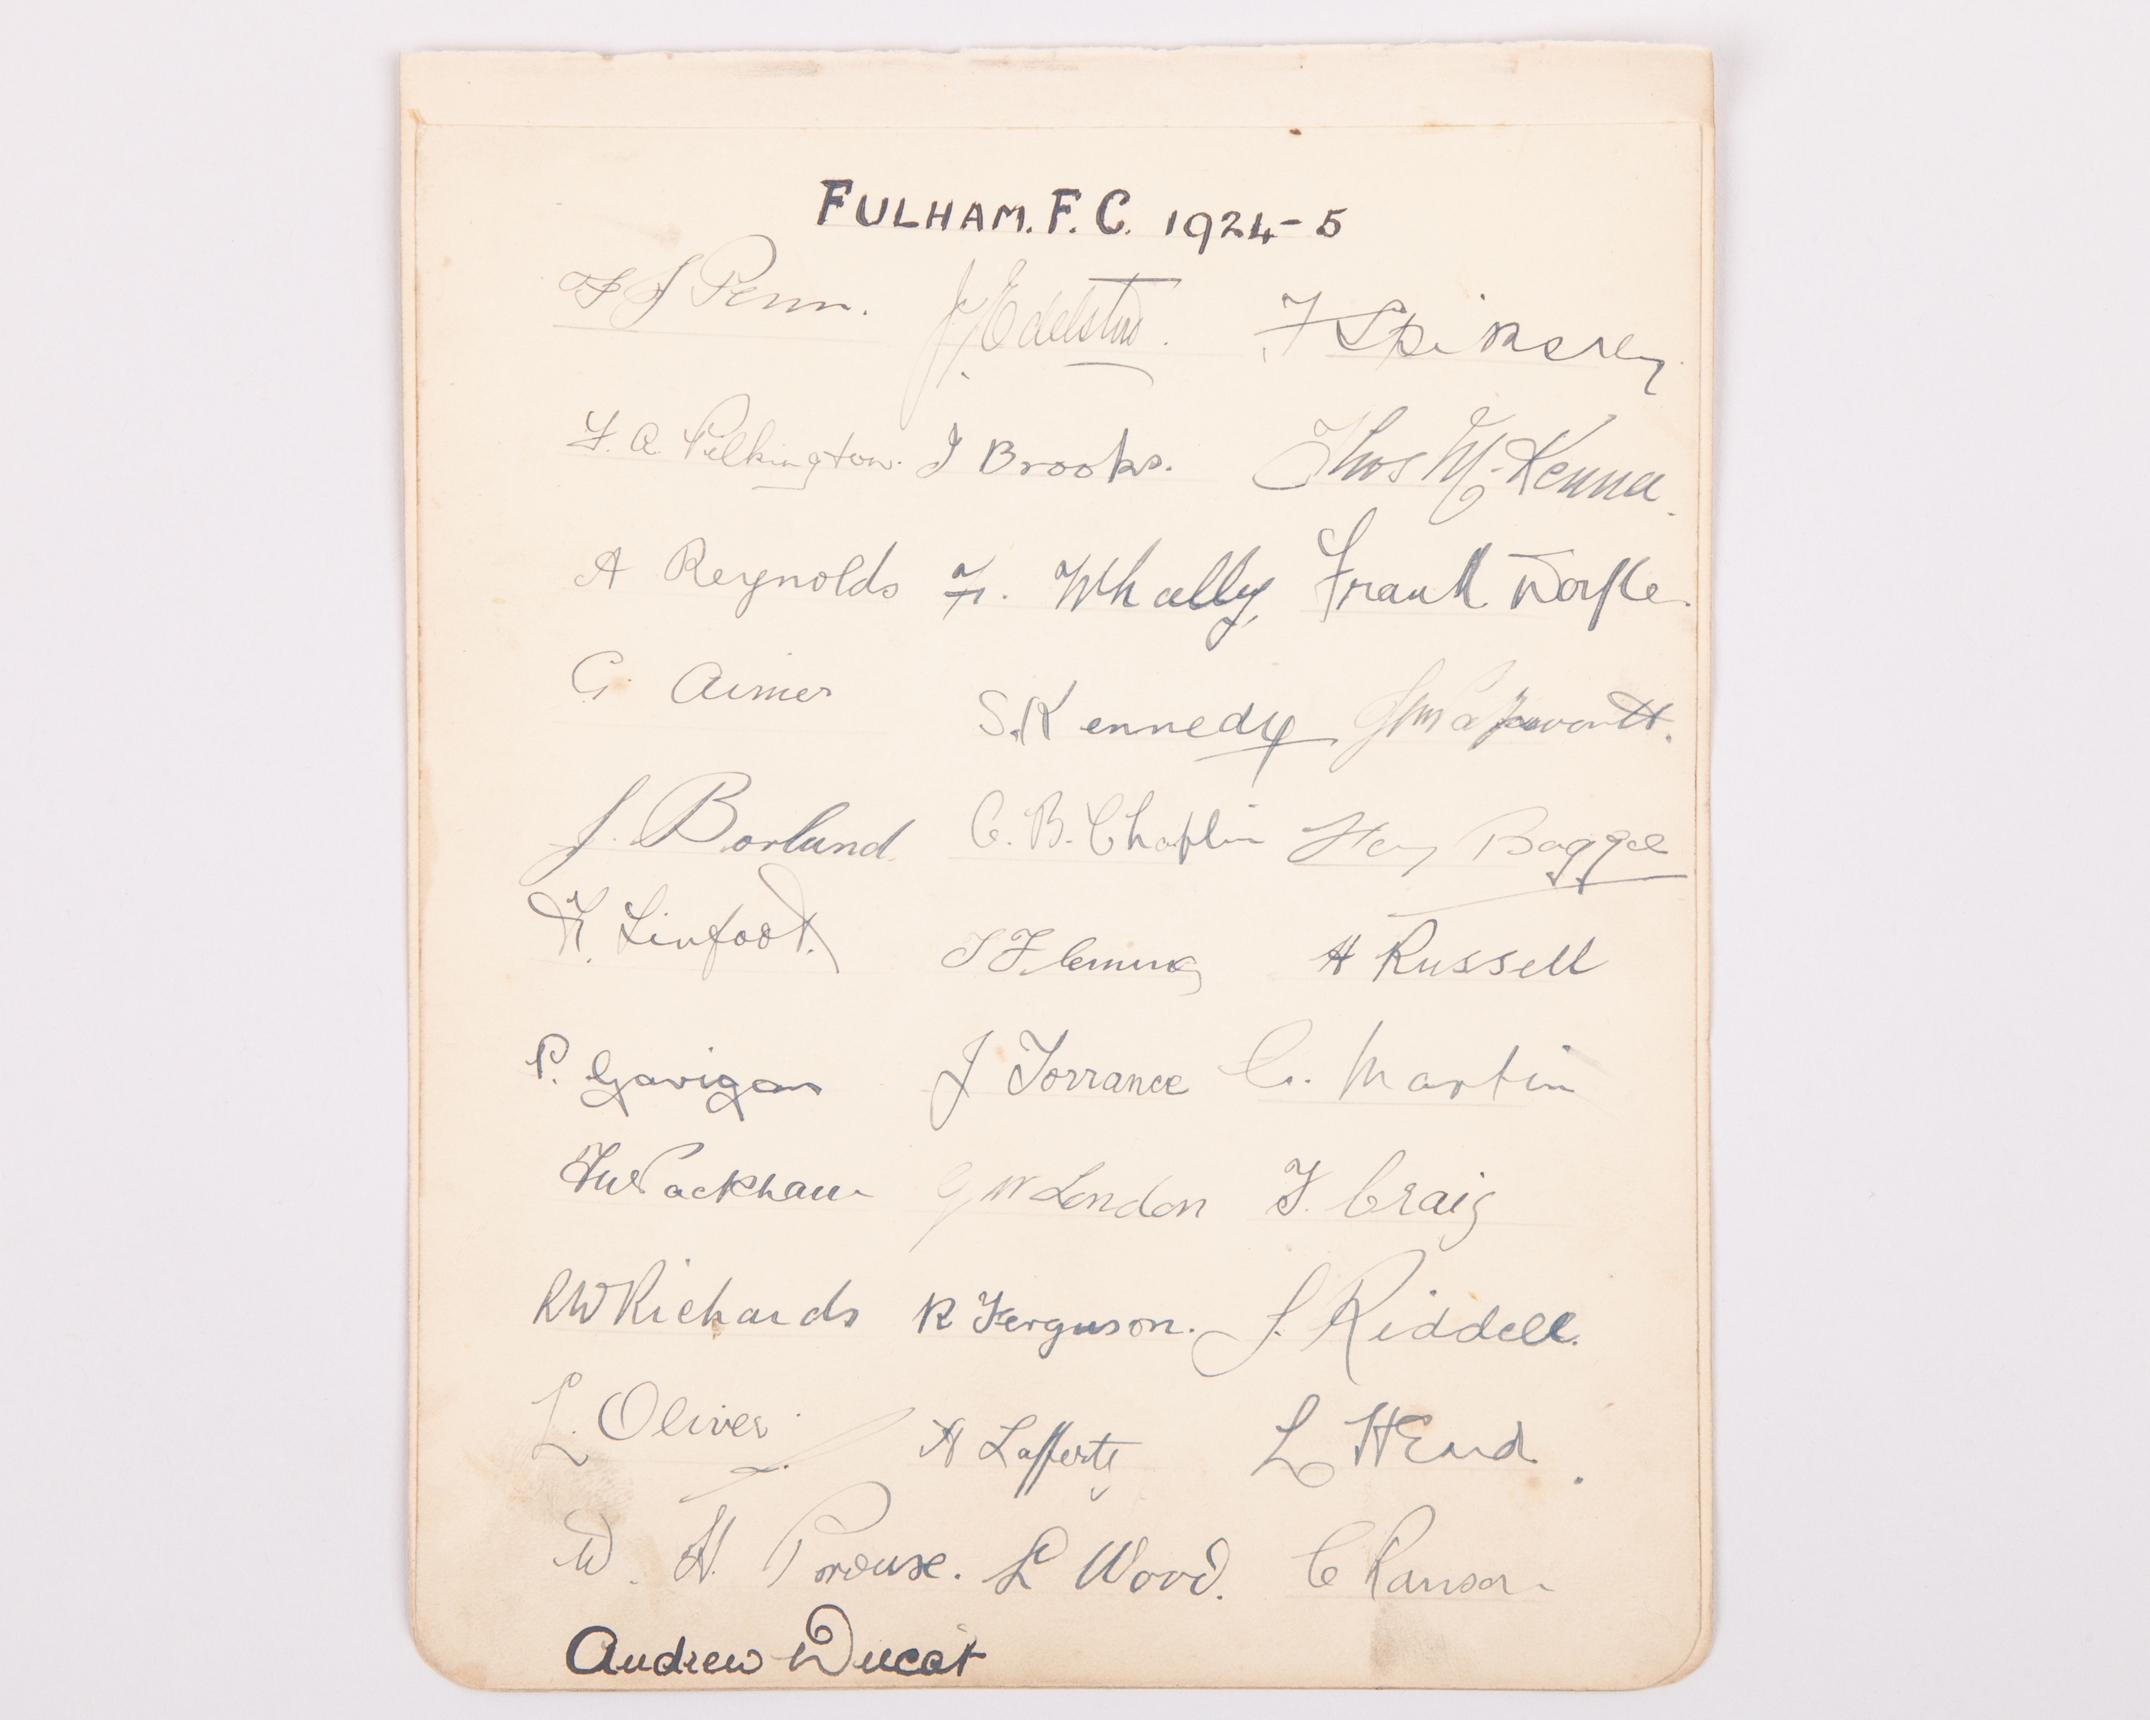 FULHAM. F. C. 1924-5
F J Penn. J Edelston. F Spiksley
F. A. Pilkington. J Brooks. Thos McKenna.
A Reynolds F. Whally Frank
G. Aimer S. Kennedy
J. Borland C. B. Chaplin Hy Bagge
F. Linfoot. T Fleming H Russell
P. Gavigan J Torrance G. Martin
Packham G W London T. Craig
R W Richards R Ferguson. J. Riddell.
L. Oliver H Lafferty L Hend
W. H. Prouse. L Wood. C Ranson
Andrew Ducat